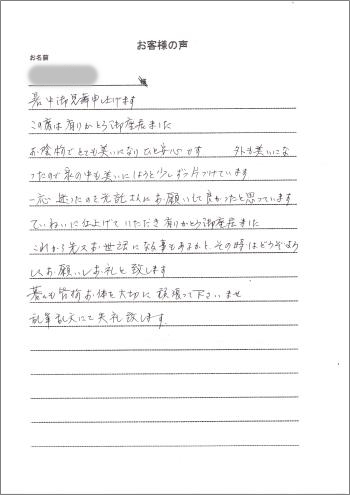 お客様の声
お名前
様
暑中御見舞申し上げます
この度は有りがとう御座居ました
お蔭様でとても美しくなりひと安心です 外も美しくな
ったので家の中も美しくしようと少しずつ片づけています
一応 迷ったので光託さんにお願いして良かったと思っています
ていねいに仕上げていただき有りがとう御座居ました
これから先又お世話になる事もあるかと その時はどうぞよろ
しくお願いしお礼と致します
暑いので皆様お体を大切に 頑張って下さいませ
乱筆乱文にて失礼致します